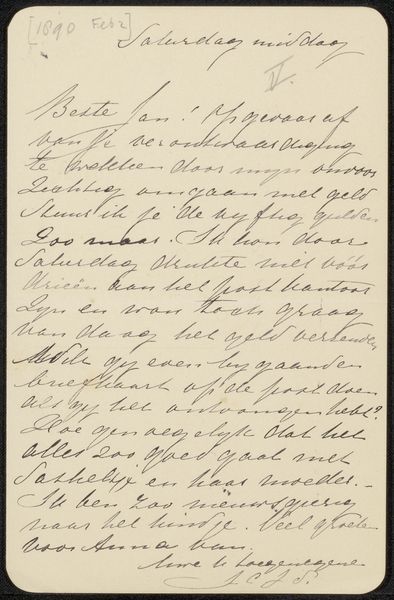 [1890 Feb 2]
Saturdag middag
V.
Beste Jan! Op gevaar af
van je verontwaardiging
te wekken door mijn onvoor
zichtig omgaan met geld
stuur ik je de vyftig gulden
zoo maar. Ik kon door
Saturdag drukte niet vóór
drieën aan het postkantoor
zyn en wou toch graag
vandaag het geld verzenden
Wilt gy even bygaande
briefkaart op de post doen
als gy het ontvangen hebt?
Hoe genoegelyk dat het
alles zoo goed gaat met
en haar moeder. -
Ik ben zoo nieuwsgierig
naar het kindje. Veel groeten
voor Anna van
Uwe U toegenegene